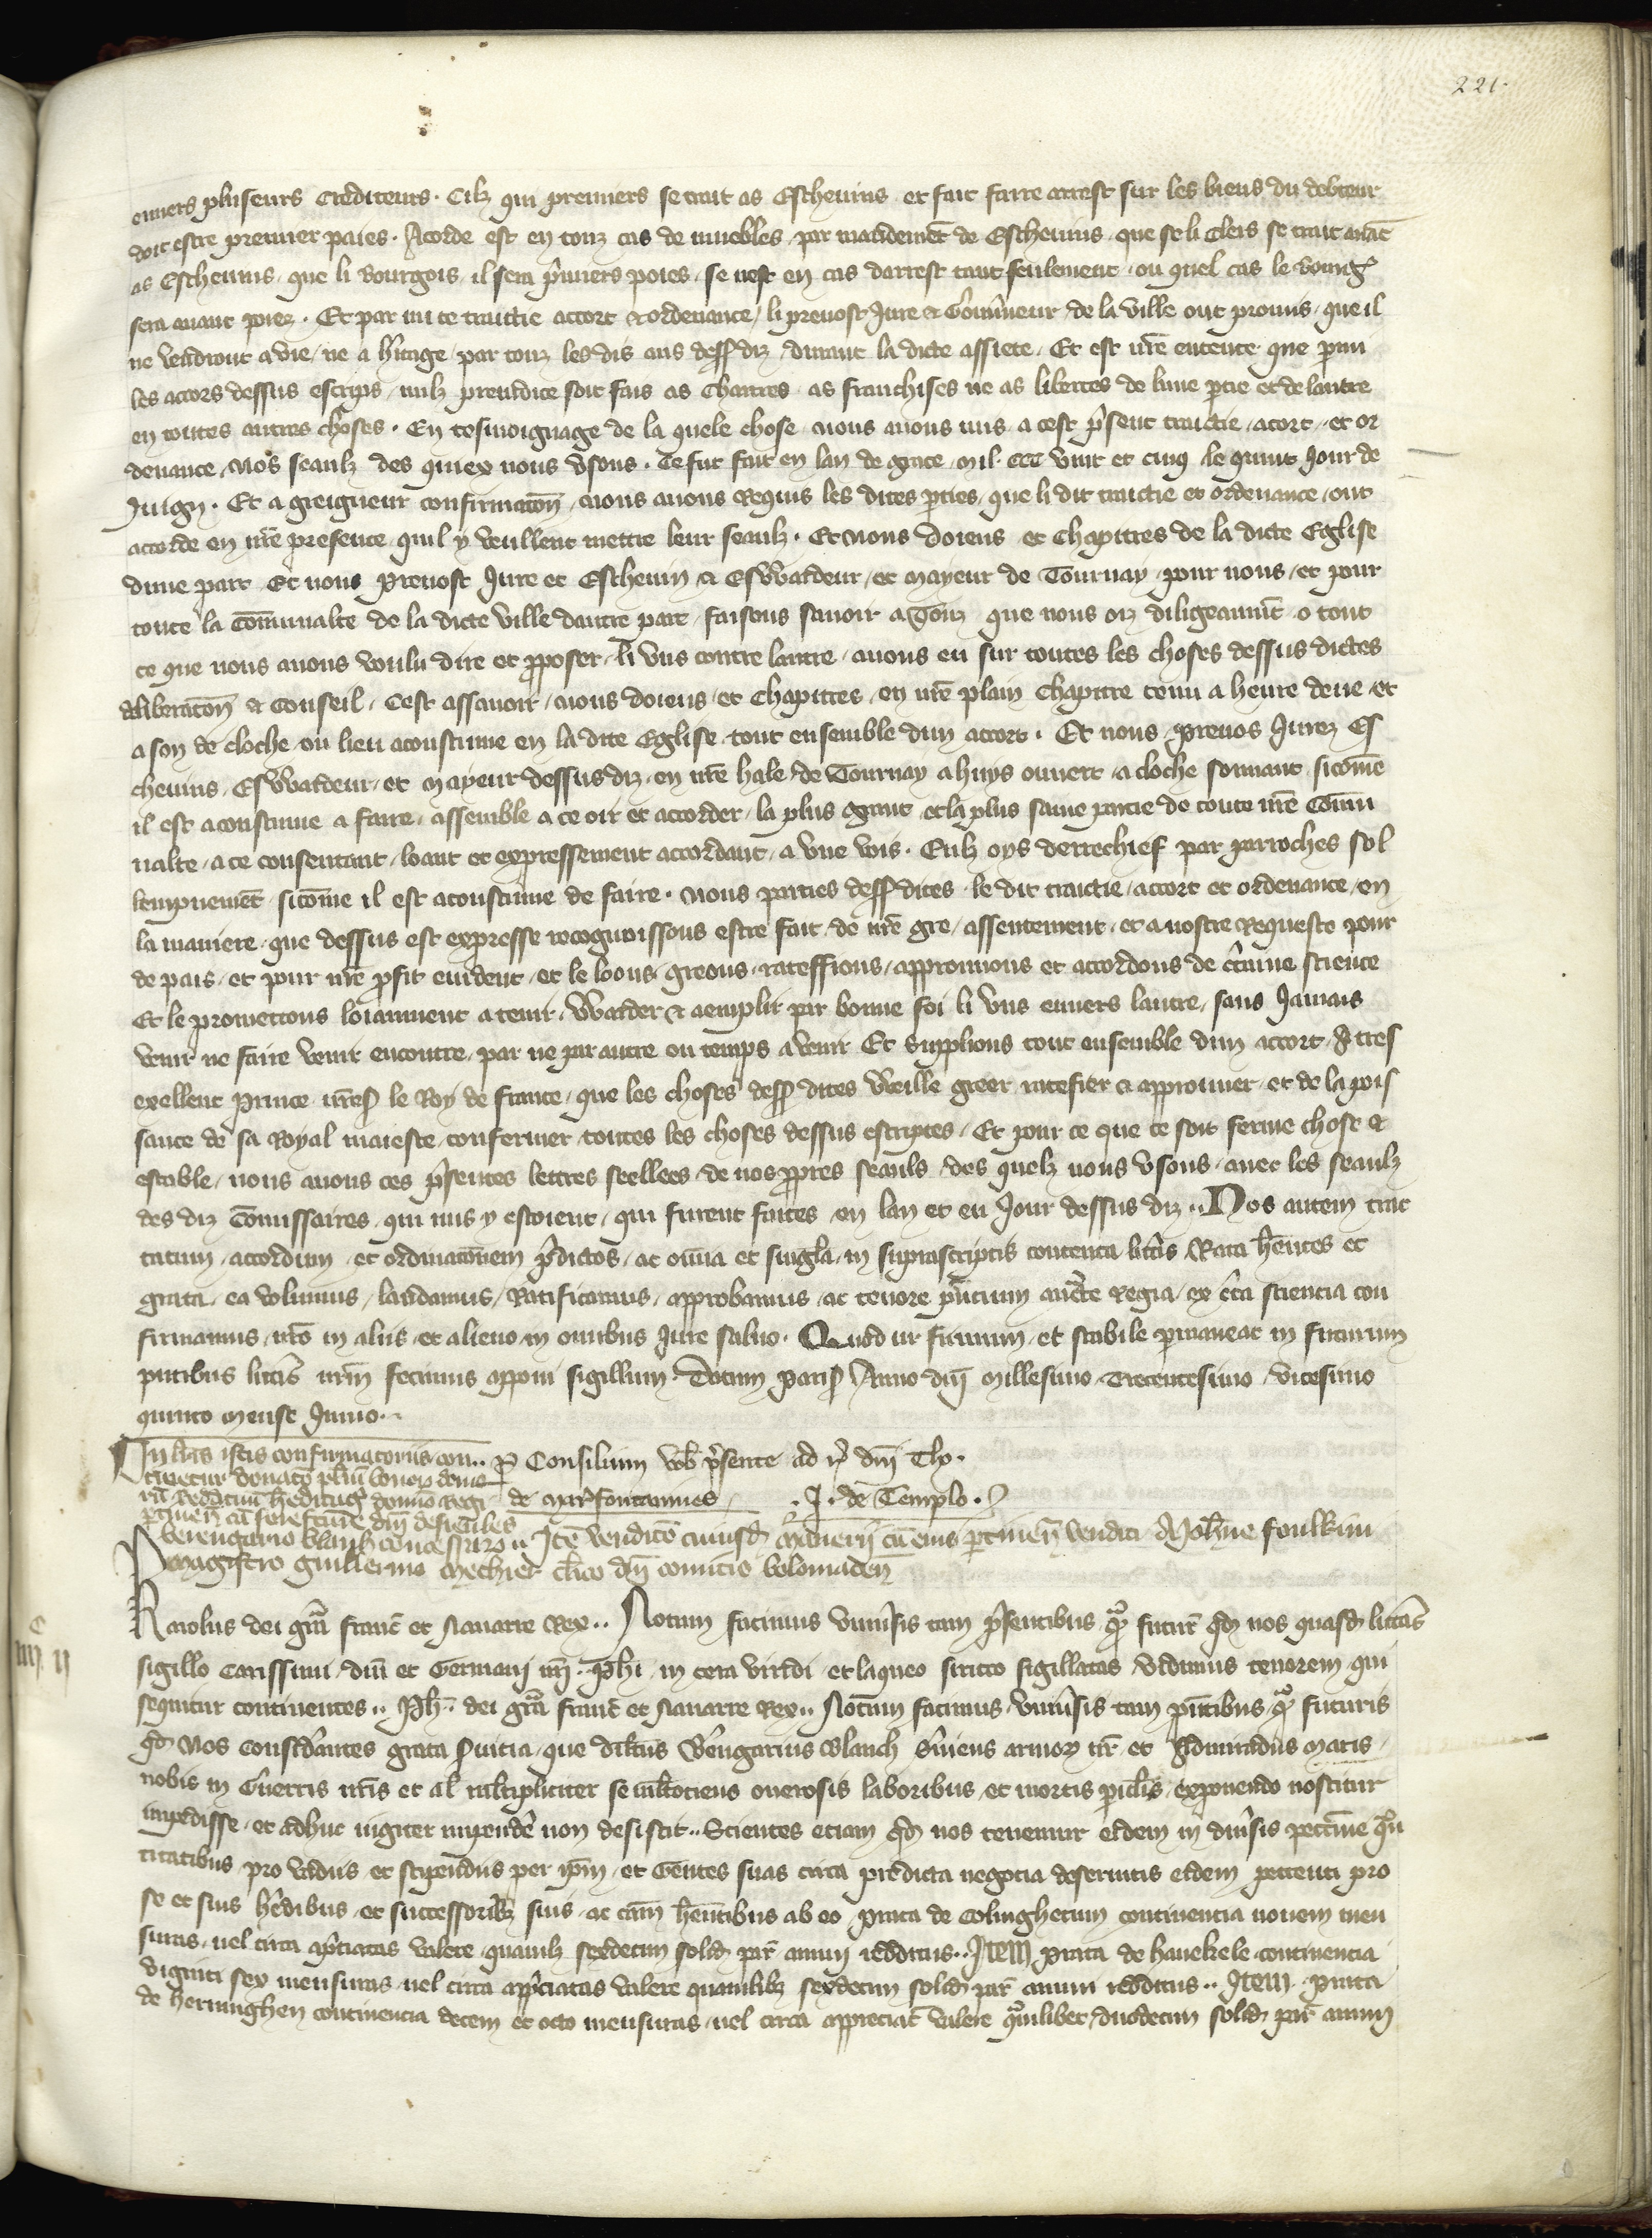 221.
enuers pluseurs Crediteurs. Cilz qui premiers se trait as Escheuins et fait faire arrest sur les biens du debteur
doit estre premier paies. Acorde est en touz cas de muebles par mandemēt de Escheuins que se li Clers se trait auāt
as Escheuins que li Bourgois il sera p̄miers poies se nest en cas darrest tant seulement ou quel cas le bourg
sera auant poiez. Et par mi ce traictie accort et ordenance li preuost Jure et Gouūneur de la ville ont promis que il
ne vendront a vie ne a h̄itage par touz les dis ans dess diz durant la dicte assiete. Et est nr̄e entente que pmi
les accors dessus escrips nulz preiudice soit fais as Chartres as franchises ne as libertes de lune ptie et de lautre
en toutes autres choses. En tesmoignage de la quele chose nous auons mis a cest p̄sent traictie acort et or
denance nos seaulz des quiex nous vsons. Ce fut fait en lan de grace mil ccc vint et cinq le quint Jour de
Juign. Et a greigneur confirmacōn nous auons Requis les dites pties que li dit traictie et ordenance ont
accorde en nr̄e presence quil y veullent mettre leur seaulz. Et nous doiens et Chapittres de la dicte Eglise
dune part Et nous Preuost Jure et Escheuin et Eswardeur et Mayeur de Tournay pour nous et pour
toute la Cōmunalte de la dicte ville dautre part faisons sauoir a Touz que nous oiz diligeaumēt o tout
ce que nous auons voulu dire et pposer li vns contre lautre auons eu sur toutes les choses dessus dictes
deliberacōn et Conseil. Cest assauoir nous doiens et Chapittres en nr̄e plain Chapittre tenu a heure deue et
a son de cloche ou lieu acoustume en la dite Eglise tout ensemble dun accort. Et nous Preuos Jurez Es
cheuins Eswardeur et Mayeur dessus diz en nr̄e hale de Tournay a huys ouuert a cloche sonnant sicōme
il est acoustume a faire assemble a ce oir et accorder la plus grant et la plus saine partie de toute nr̄e Cōmu
nalte a ce consentant loant et expressement accordant a vne vois. Eulz oys derrechief par parroches sol
lempnemēt sicōme il est acoustume de faire. Nous parties dess dites le dit traictie accort et ordenance en
la maniere que dessus est expresse recognoissons estre fait de nr̄e gre assentement et a nostre Requeste pour
de pais et pour nr̄e pfit euident et le loons greons rateffions approuuons et accordons de c̄taine science
Et le promettons loiaument a tenir warder et aemplir par bonne foi li vns enuers lautre sans Jamais
venir ne faire venir encontre par ne par autre ou temps a venir Et Supplions tout ensemble dun accort A tres
exellent Prince nr̄es le Roy de france que les choses dess dites Weille greer ratefier et approuuer et de la pois
sance de sa Royal maieste confermer toutes les choses dessus escriptes. Et pour ce que ce soit ferme chose et
estable nous auons ces p̄sentes lettres seellees de nos ppres seauls des quelz nous vsons auec les seaulz
des diz Cōmissaires qui mis y estoient qui furent faites en lan et eu Jour dessus diz.. Nos autem trac
tatum accordum et ordinacōnem p̄dictos ac om̄ia et singl̄a in suprascriptis contenta litt̄is Rata h̄entes et
grata ea volumus laudamus Ratificamus approbamus ac tenore p̄ncium auct̄te Regia ex c̄ta sciencia con
firmamus nr̄o in aliis et alieno in omibus Jure saluo. Quod ut firmum et stabile pmaneat in futurum
pntibus litt̄is nr̄m fecimus apponi sigillum. Datum Paris Anno dn̄i Millesimo Trecentesimo vicesimo
quinto mense Junio..
In litt̄is istis confirmatoriis con.. P Consilium vob p̄sente ad r̄ dn̄i Tho.
tinetur donatō plīu bonoz domo
de Mar fontanines . J. de Templo.
Berengario blanch concessaro.. Itē vendicō cuiusd Manerii cū eius ptinen vendita Ioh̄ne foulkin
Magistro Guillermo Mechiet clīco dn̄i comitis Bolonaden
Karolus dei gr̄a franc̄ et Nauarre Rex.. Notum facimus vniūsis tam p̄sentibus qm futur qd nos quasd litt̄as
sigillo Carissimi dn̄i et Germani nr̄i Ph̄i in cera viridi et laqueo sirico sigillatas vidimus tenorem qui
sequitur continentes.. Ph̄.. dei gr̄a franc̄ et Nauarre Rex.. Notum facimus vniūsis tam pn̄tibus qm futuris
qd Nos Considāntes grata suicia que dil̄cus B̄engarius Blanch s̄uiens armoz nr̄ et Admiradus maris
nobis in Guerris nr̄is et al mltipliciter se mltociens onerosis laboribus et mortis pic̄lis exponendo noscitur
impedisse et adhuc iugiter impendē non desistit.. Scientes etiam qd nos tenemur eidem in diūsis peccūie qn
titatibus pro vadiis et stipendiis per ip̄m et Gentes suas circa predicta negocia deseruitis eidem petenti pro
se et suis h̄edibus et successoribz suis ac cām h̄entibus ab eo prata de Colinghetum continencia nouem men
suras uel circa apc̄iatas valere quamlz sexdecim solid par annui redditus.. Item prata de hauekele continencia
viginti sex mensuras uel circa apc̄iatas valere quamlibz sexdecim solid par annui redditus.. Item prata
de heruinghen continencia decem et octo mensuras uel circa appreciat valere qmlibet duodecim solid par annui